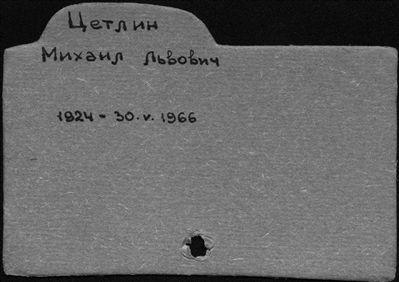 Цетлин
Михаил Львович
1924 - 30.v.1966